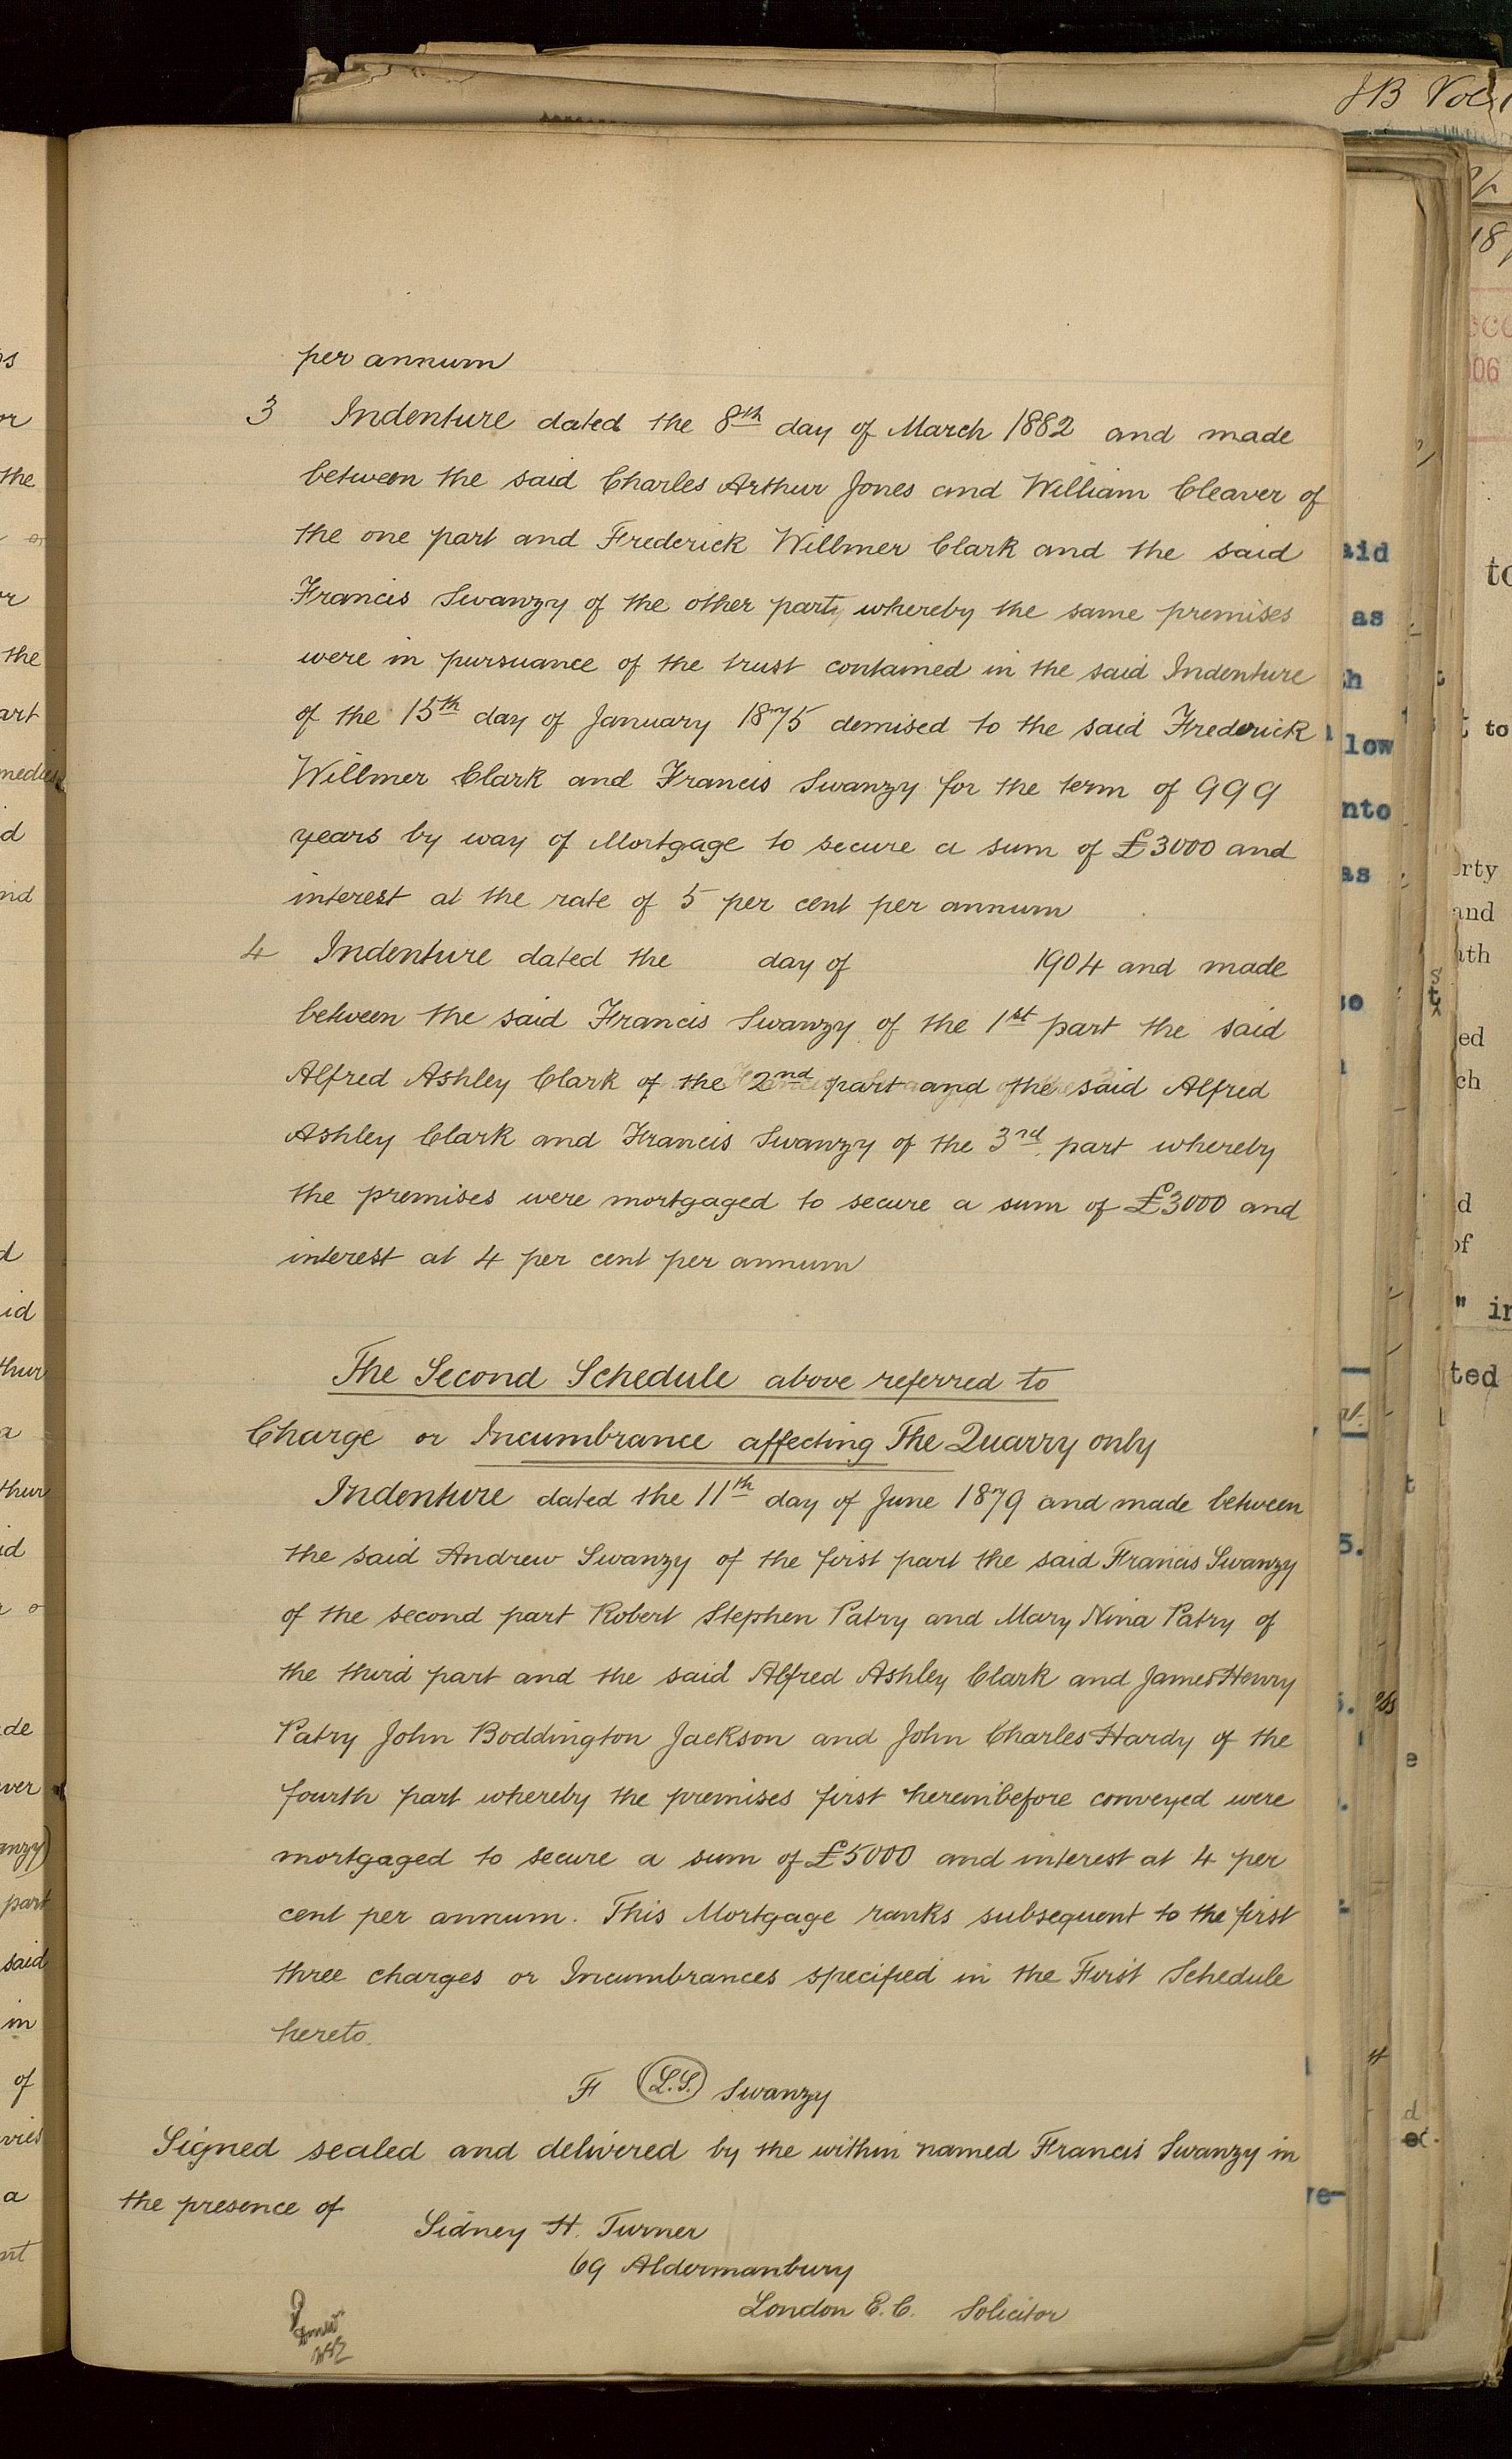 JB Vol 1
per annum
3 Indenture dated the 8th day of March 1882 and made
between the said Charles Arthur Jones and William Cleaver of
the one part and Frederick Willmer Clark and the said
Francis Swanzy of the other part, whereby the same premises
were in pursuance of the trust contained in the said Indenture
of the 15th day of January 1875 demised to the said Frederick
Willmer Clark and Francis Swanzy for the term of 999
years by way of Mortgage to secure a sum of £3000 and
interest at the rate of 5 per cent per annum
4 Indenture dated the day of 1904 and made
between the said Francis Swanzy of the 1st part the said
Alfred Ashley Clark of the 2nd part and the said Alfred
Ashley Clark and Francis Swanzy of the 3rd part whereby
the premises were mortgaged to secure a sum of £3000 and
interest at 4 per cent per annum
The Second Schedule above referred to
Charge or Incumbrance affecting The Quarry only
Indenture dated the 11th day of June 1879 and made between
the said Andrew Swanzy of the first part the said Francis Swanzy
of the second part Robert Stephen Patry and Mary Nina Patry of
the third part and the said Alfred Ashley Clark and James Henry
Patry John Boddington Jackson and John Charles Hardy of the
fourth part whereby the premises first hereinbefore conveyed were
mortgaged to secure a sum of £5000 and interest at 4 per
cent per annum. This Mortgage ranks subsequent to the first
three charges or Incumbrances specified in the First Schedule
hereto.
F L.S. Swanzy
Signed sealed and delivered by the within named Francis Swanzy in
the presence of
Sidney H. Turner
69 Aldermanbury
London E.C. Solicitor